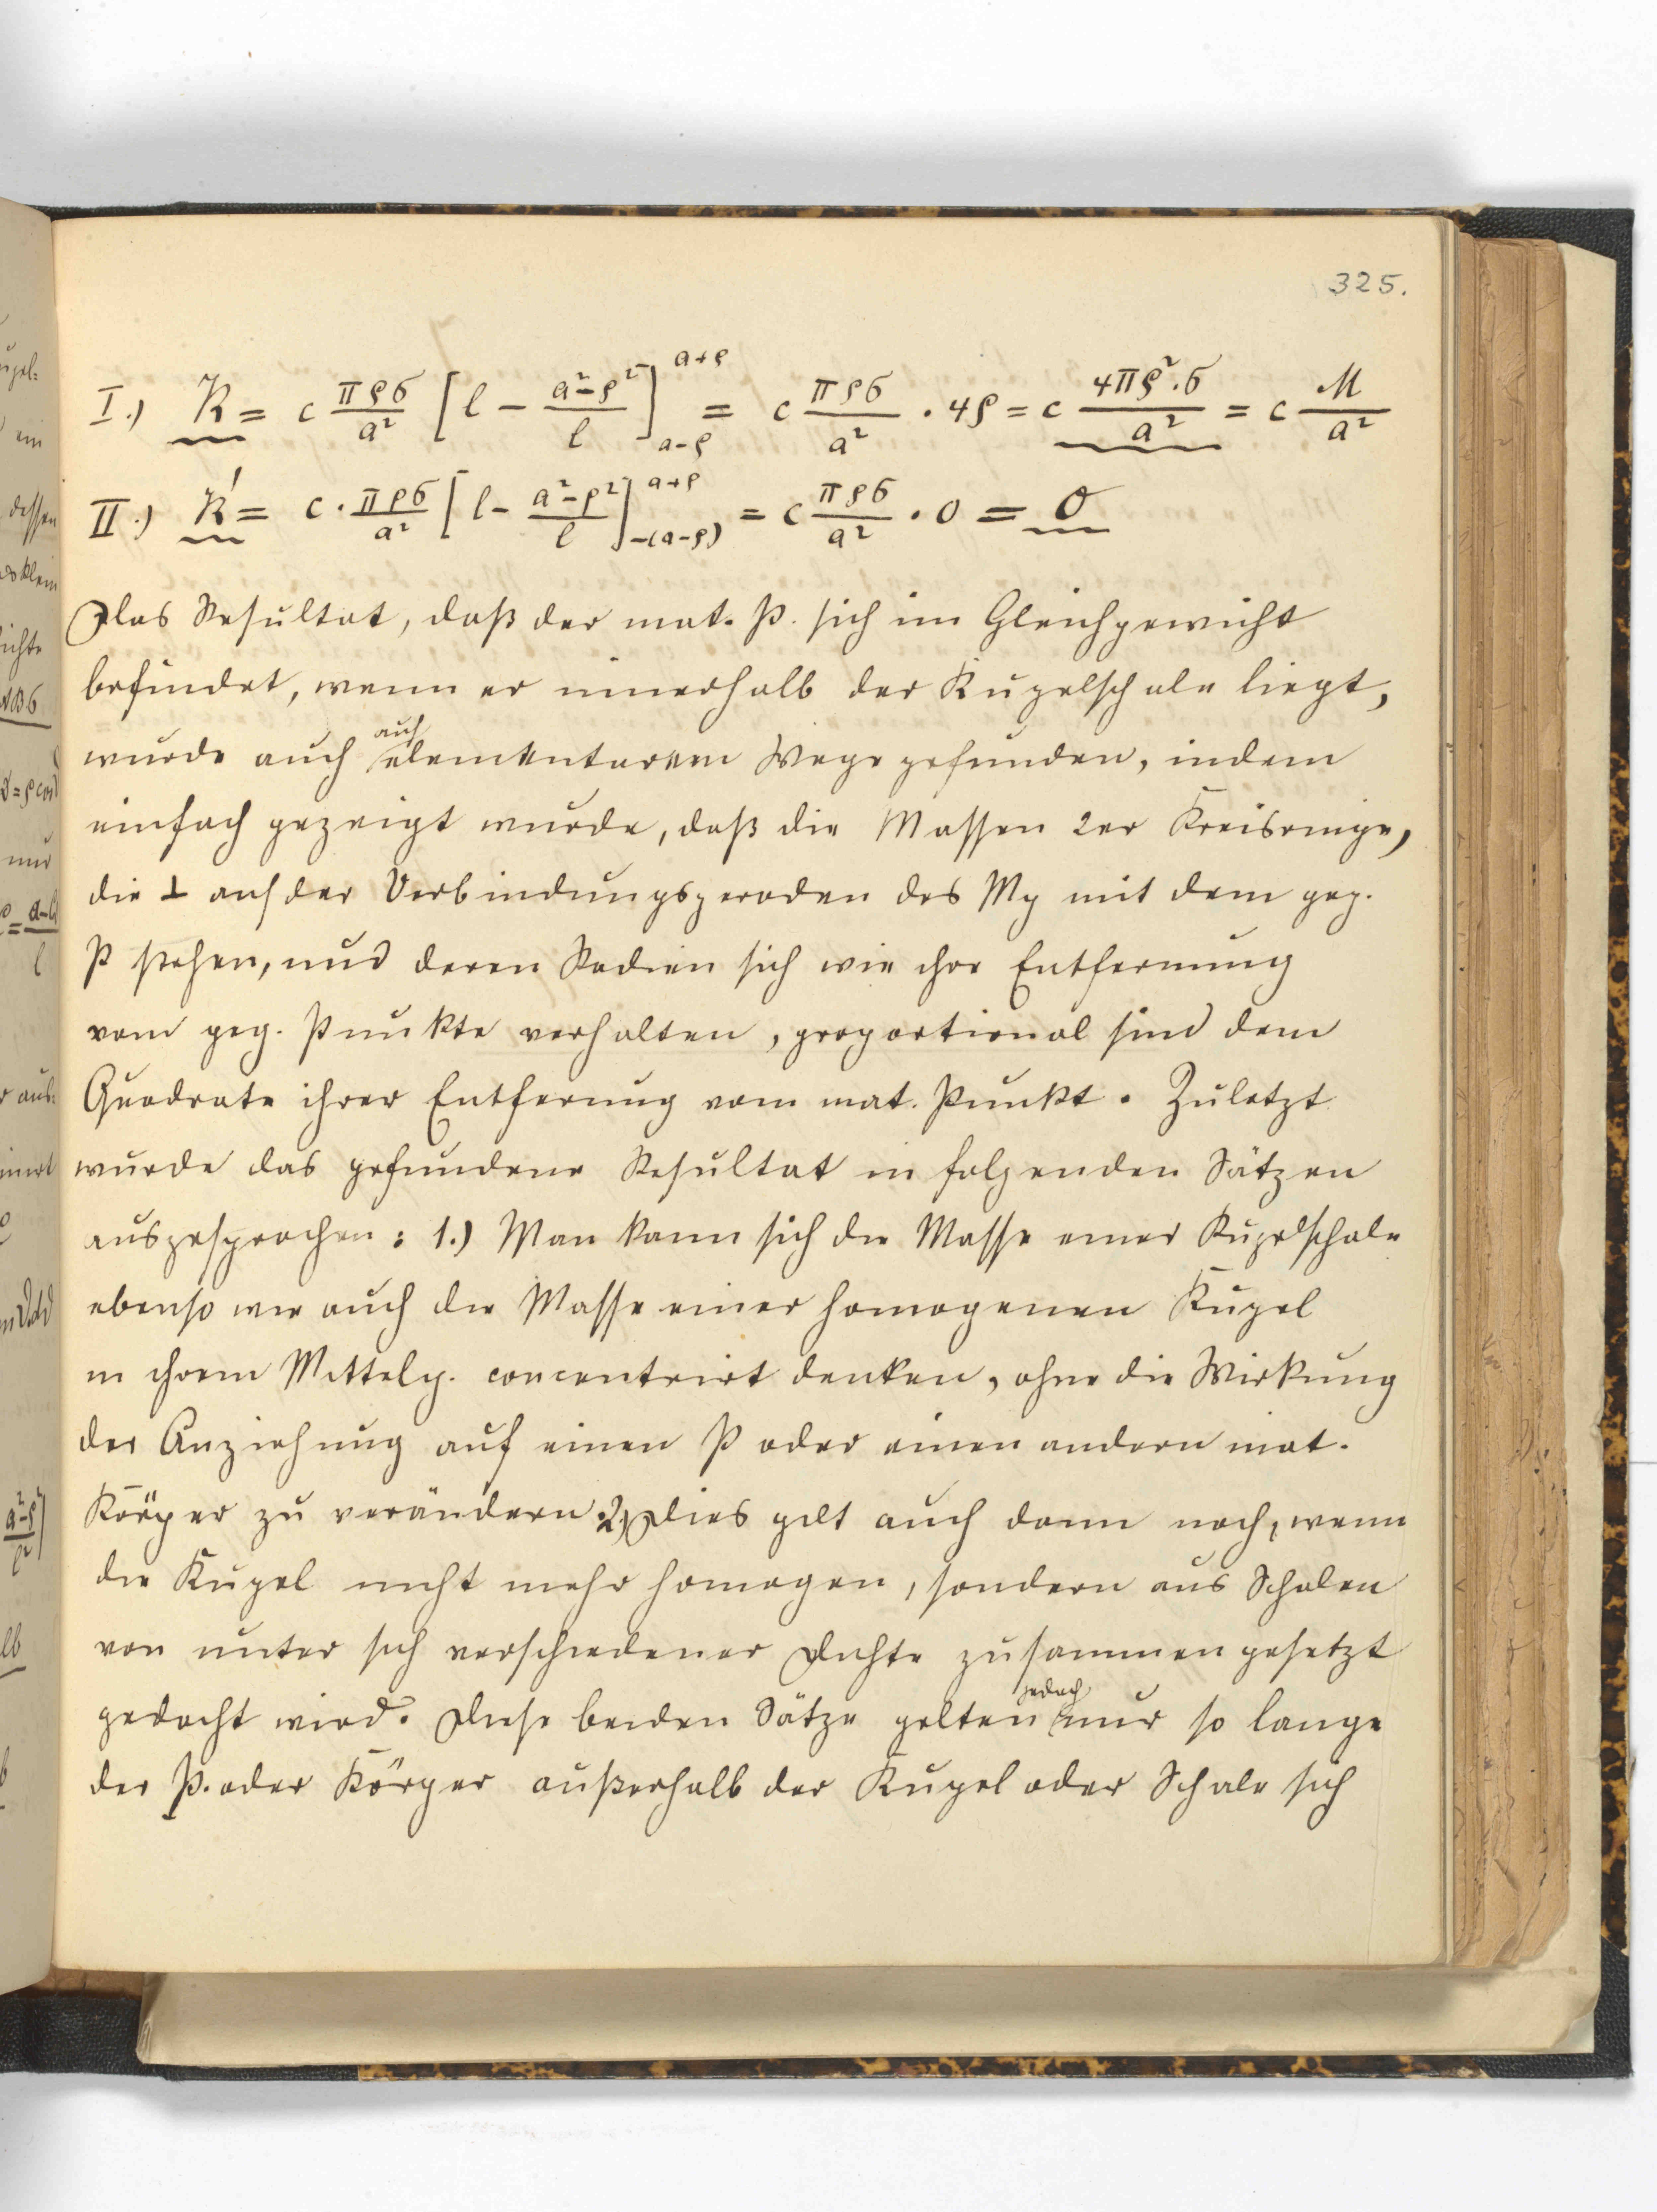 325.
I.) K = c πρσ/a² [l − (a²−ρ²)/l]_{a−ρ}^{a+ρ} = c πρσ/a² · 4ρ = c 4πρ²·σ/a² = c M/a²
II.) K' = c · πρσ/a² [l − (a²−ρ²)/l]_{−(a−ρ)}^{a+ρ} = c πρσ/a² · 0 = 0
Das Resultat, daß der mat. P. sich im Gleichgewicht
befindet, wenn er innerhalb der Kugelschale liegt,
auf
wurde auch elementarem Wege gefunden, indem
einfach gezeigt wurde, daß die Massen 2er Kreisringe,
die ⊥ auf der Verbindungsgeraden des Mp mit dem geg.
P stehen, und deren Radien sich wie ihre Entfernung
vom geg. Punkte verhalten, proportional sind dem
Quadrate ihrer Entfernung vom mat. Punkt. Zuletzt
wurde das gefundene Resultat in folgenden Sätzen
ausgesprochen: 1.) Man kann sich die Masse einer Kugelschale
ebenso wie auch die Masse einer homogenen Kugel
in ihrem Mittelp. concentrirt denken, ohne die Wirkung
der Anziehung auf einen P oder einen andern mat.
Körper zu verändern. 2.) Dies gilt auch dann noch, wenn
die Kugel nicht mehr homogen, sondern aus Schalen
von unter sich verschiedener Dichte zusammengesetzt
jedoch
gedacht wird. Diese beiden Sätze gelten nur so lange
der P. oder Körper außerhalb der Kugel oder Schale sich